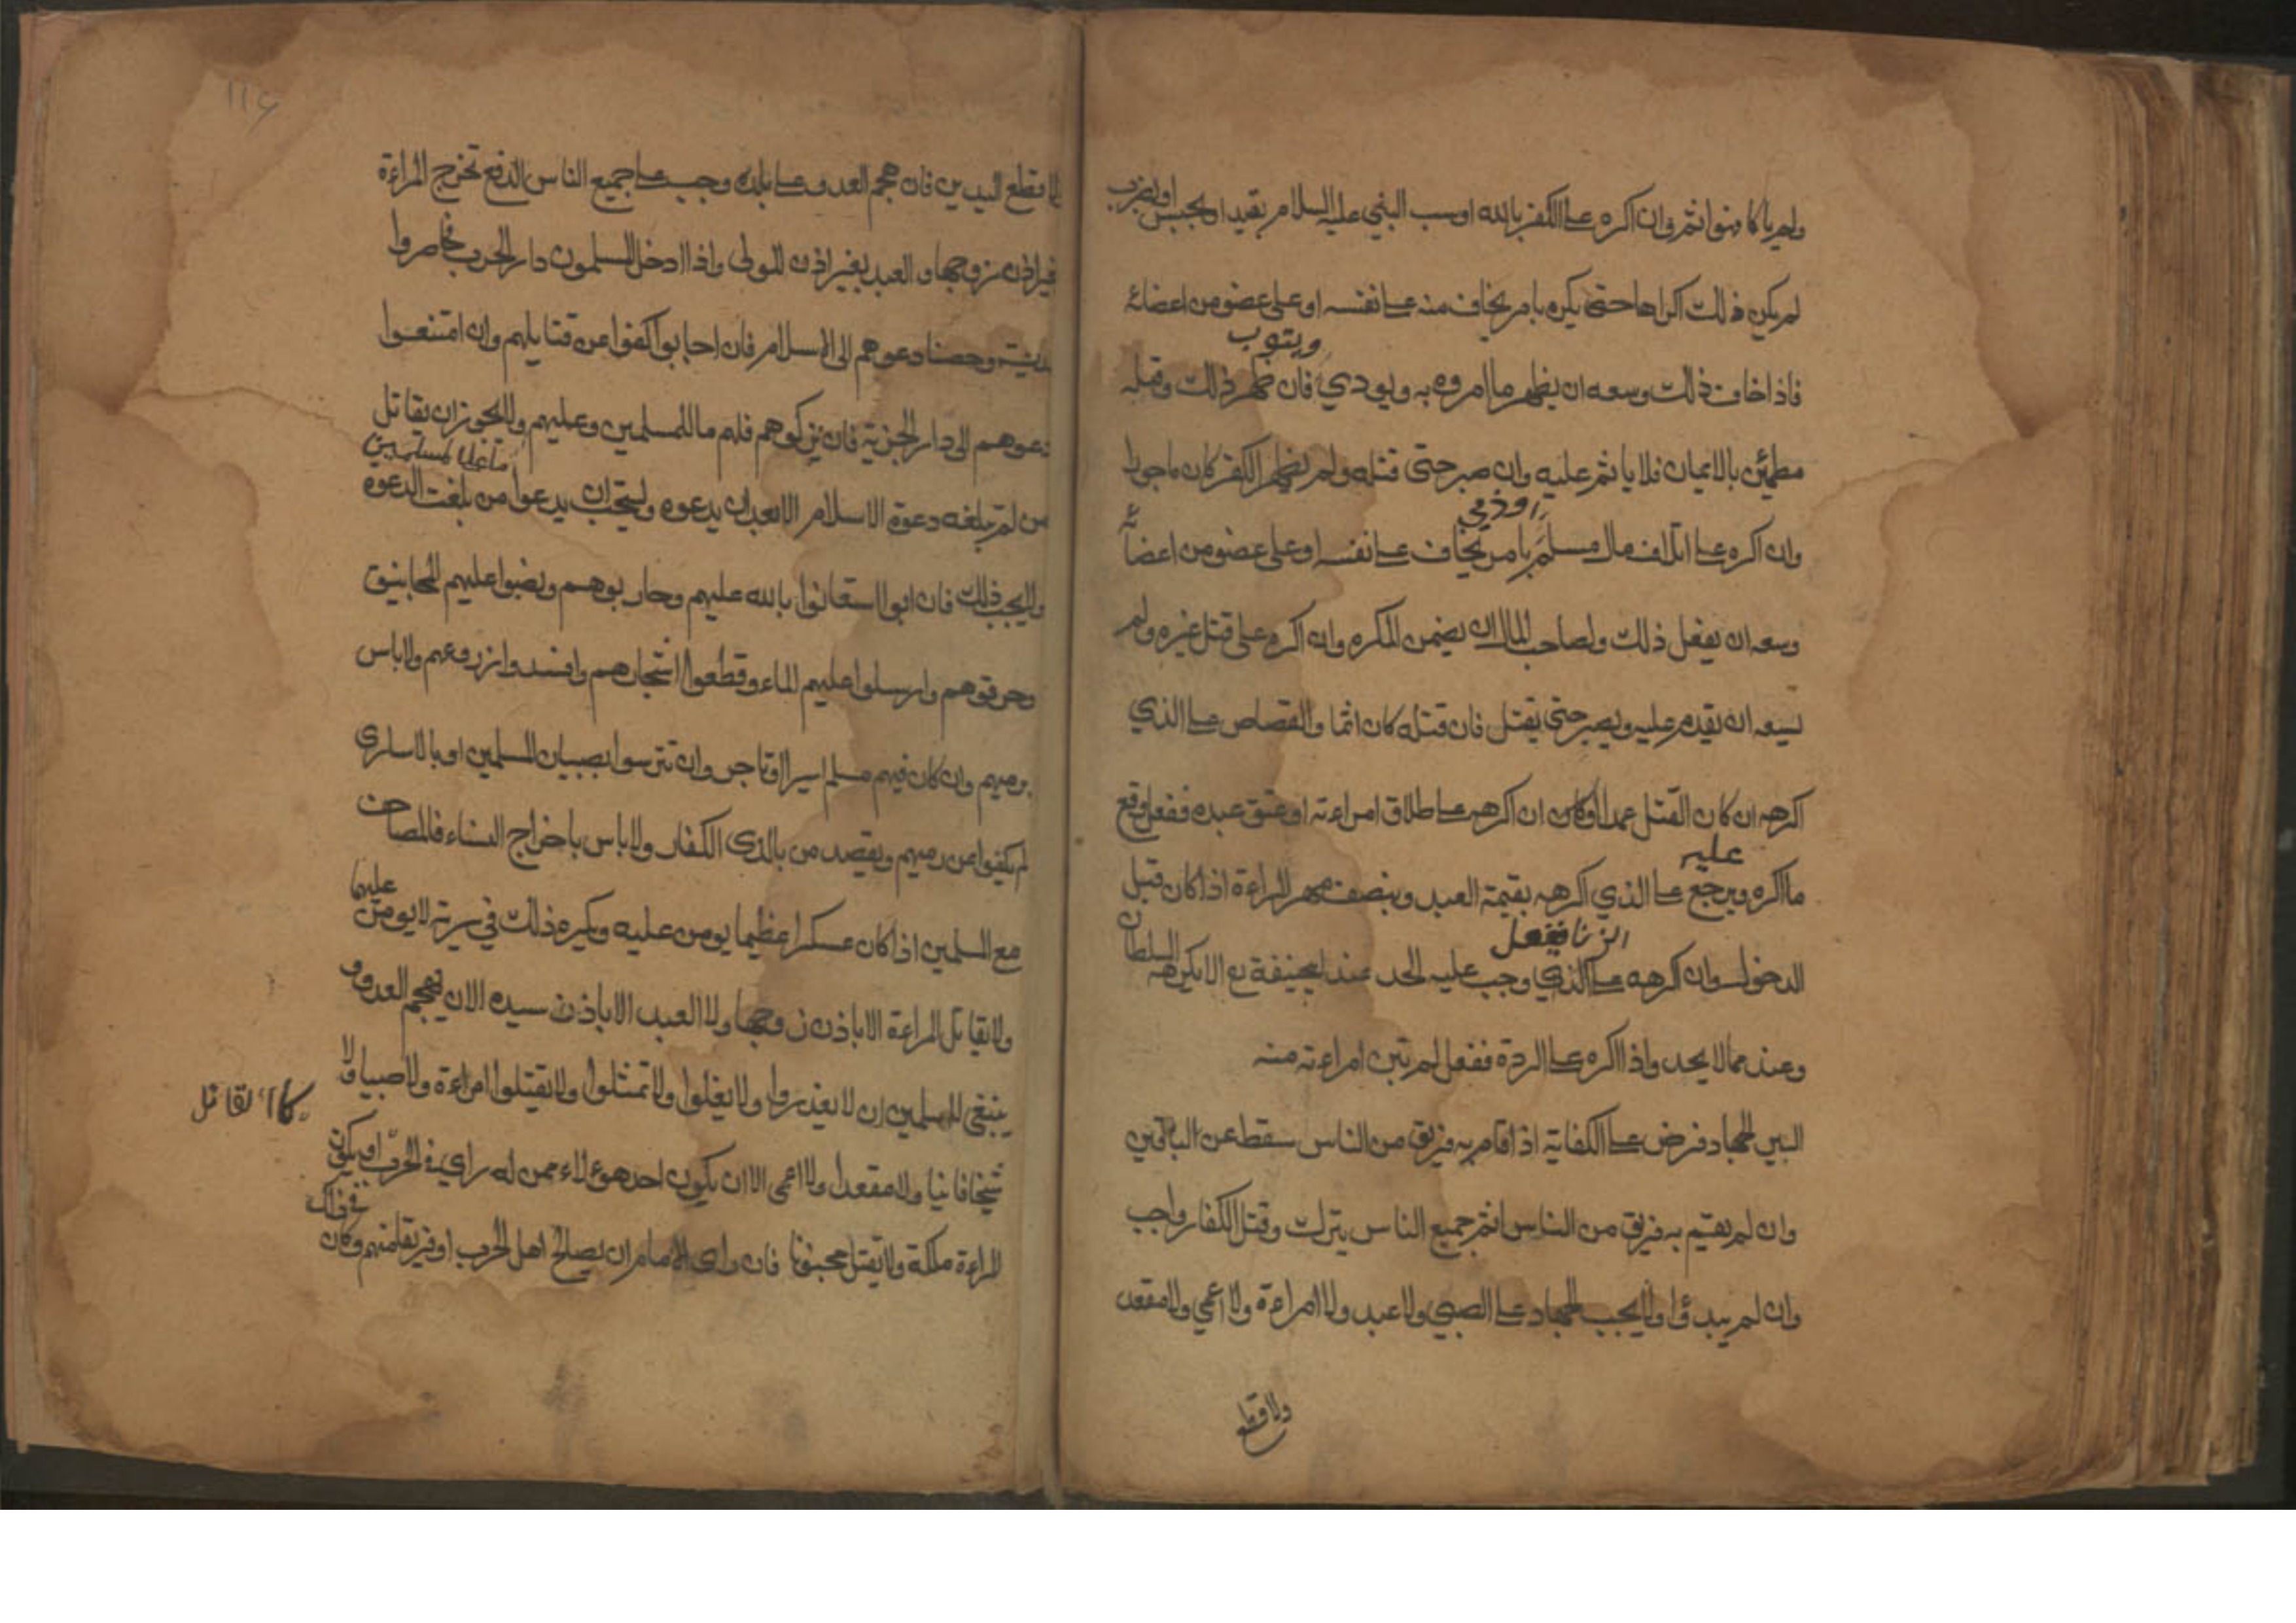 ولم ياكا منوا اثم وان اكره على الكفر بالله او سب النبي عليه السلام بقيد او بحبس او بضرب
لم يكن ذلك اكراها حتى يكره بامر يخاف منه على نفسه او على عضو من اعضائه
ويتوب
فاذا خاف ذلك وسعه ان يظهر ما امروه به ويودي فان ظهر ذلك وقلبه
مطمئن بالايمان فلا ياثم عليه وان صبر حتى قتله ولم يظهر الكفر كان ماجورا
او ذمي
وان اكره على اتلاف مال مسلم بامر يخاف على نفسه او على عضو من اعضائه
وسعه ان يفعل ذلك ولصاحب المال ان يضمن المكره وان اكره على قتل غيره ولم
يسعه ان يقدم عليه ويصبر حتى يقتل فان قتله كان اثما والقصاص على الذي
اكرهه ان كان القتل عمدا وكان ان اكرهه على طلاق امراءته او عتق عبده ففعل وقع
عليه
ما اكره ويرجع على الذي اكرهه بقيمة العبد وبنصف مهر المراءة اذا كان قبل
الزنا ففعل
السلطان
الدخول وان اكرهه على الذي وجب عليه الحد عند ابيحنيفة رح الا يكرهه
وعندهما لا يحد واذا اكره على الردة ففعل لم تبن امراءته منه
السير الجهاد فرض على الكفاية اذا قام به فريق من الناس سقط عن الباقين
وان لم يقيم به فريق من الناس اثم جميع الناس بترك وقتل الكفار واجب
وان لم يبدؤا ولا يجب الجهاد على الصبي ولا عبد ولا امراءة ولا اعمي ولا مقعد
ولا اقطع
لا اقطع اليدين فان هجم العدو على بلده وجب على جميع الناس الدفع تخرج المراءة
غير اذن زوجها والعبد بغير اذن المولى واذا ادخل المسلمون دار الحرب فحاصروا
مدينة وحصنا دعوهم الى الاسلام فان اجابوا كفوا عن قتايلهم وان امتنعوا
دعوهم الى دار الجزية فان تركوهم فلهم ما للمسلمين وعليهم ولا يجوز ان يقاتل
ما على المسلمين
من لم تبلغه دعوة الاسلام الا بعد ان يدعوه ويستحب ان يدعوا من بلغت الدعوة
ولا يجب ذلك فان ابوا استعانوا بالله عليهم وحاربوهم ونصبوا عليهم المجانيق
وحرقوهم وارسلوا عليهم الماء وقطعوا اشجارهم وافسدوا زروعهم ولا باس
برميهم وان كان فيهم مسلم اسيرا او تاجر وان تترسوا بصبيان المسلمين او بالاسارى
لم يكفوا عن رميهم ويقصد من بالذى الكفار ولا باس باخراج النساء فالمصاحف
عليها
مع المسلمين اذا كان عسكرا عظيما يومن عليه ويكره ذلك في سرية لا يومن
ولا تقاتل المراءة الا باذن زوجها ولا العبد الا باذن سيده الا ان يهجم العدو و
ينبغي للمسلمين ان لا يغدروا ولا يغلوا ولا تمثلوا ولا تقتلوا امراءة ولا صبيا ولا
شيخا فانيا ولا مقعدا ولا اعمى الا ان يكون احد هوءلاء ممن له راي في الحرب او يكون
المراءة ملكة ولا تقتل مجنونا فان راى الامام ان يصالح اهل الحرب او فريقا منهم وكان
في ذلك